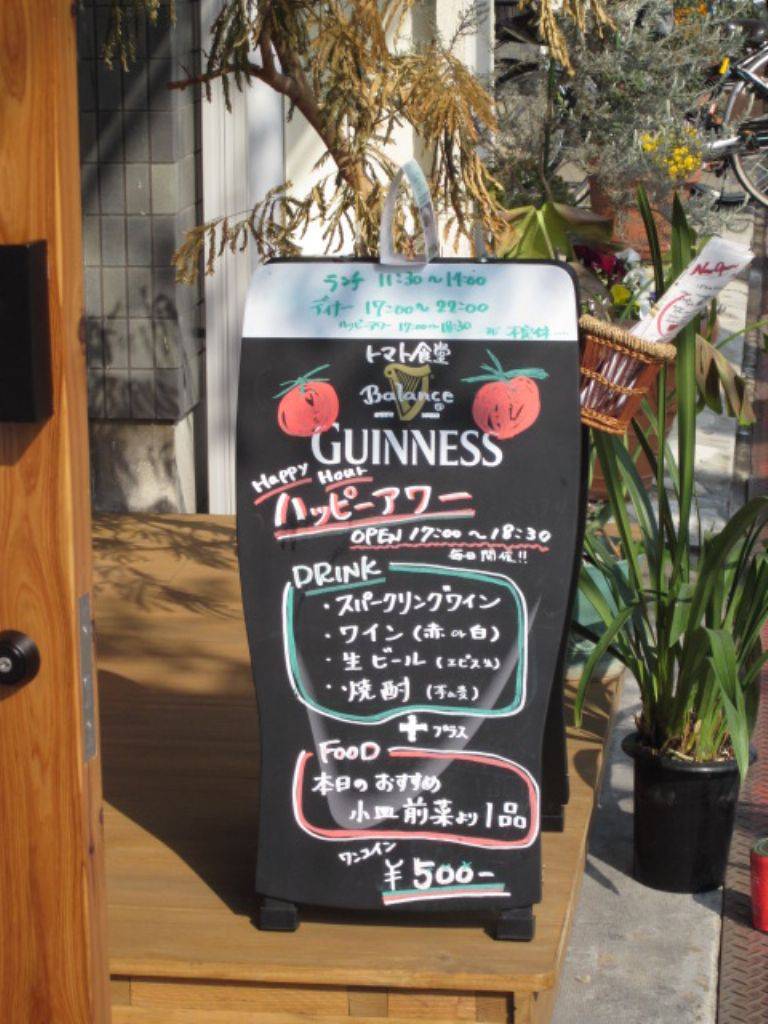 ランチ 11:30〜14:00
ディナー 17:00〜22:00
ハッピーアワー 17:00〜18:30
トマト食堂
Balance
GUINNESS
Happy Hour
ハッピーアワー
OPEN 17:00〜18:30
毎日開催!!
DRINK
・スパークリングワイン
・ワイン(赤or白)
・生ビール(エビス生)
・焼酎(芋or麦)
+プラス
FOOD
本日のおすすめ
小皿前菜より1品
ワンコイン
¥500-
New Open